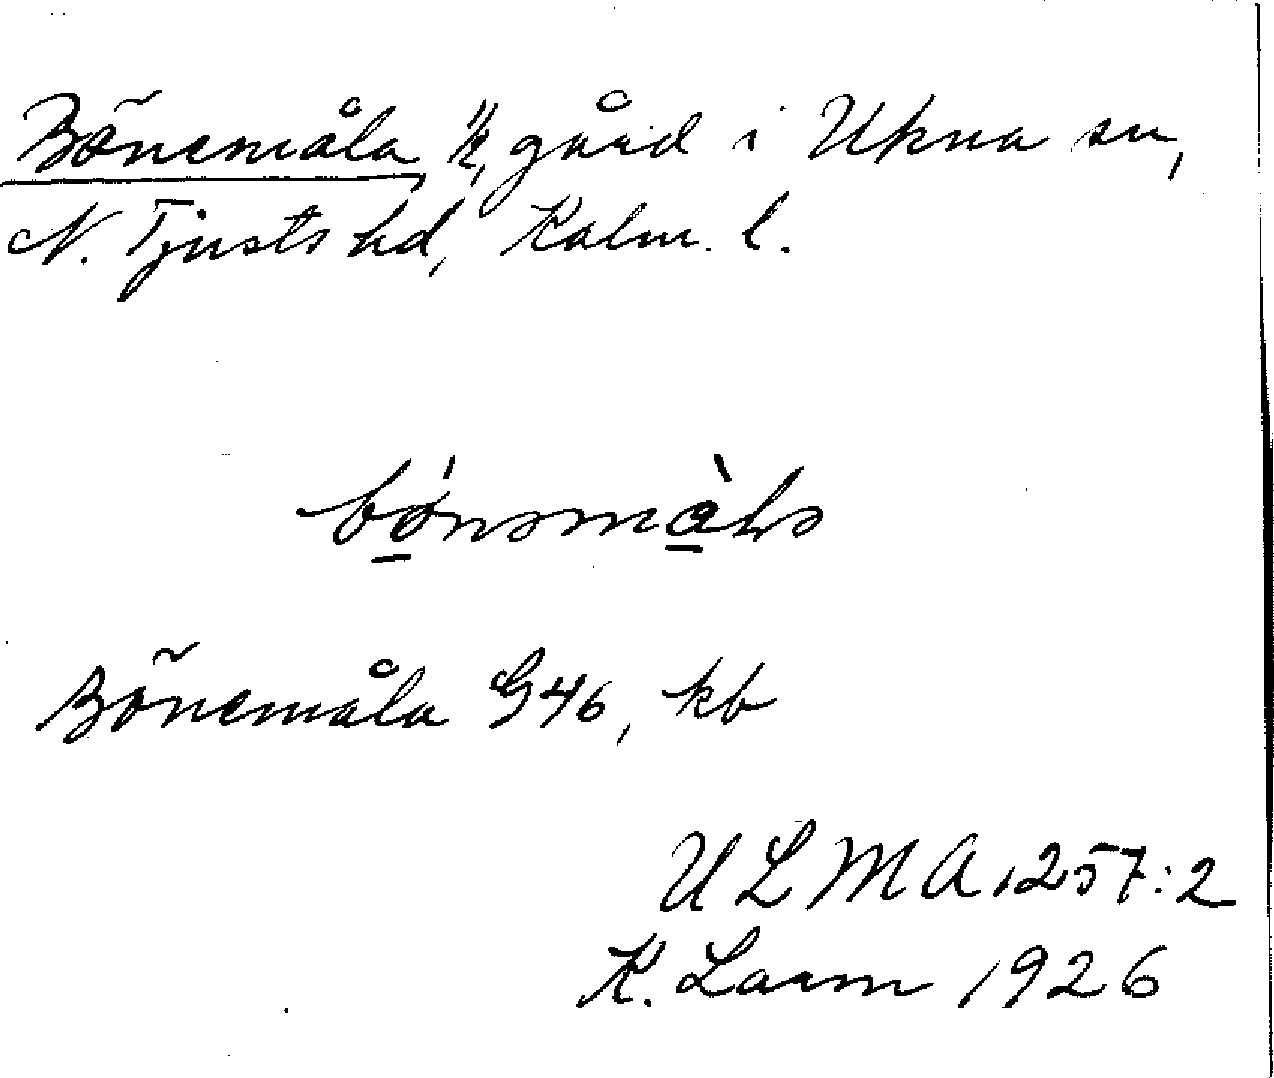 Bönemåla ¼, gård i Ukna sn,
N. Tjusts hd, Kalm. l.
Bönemåla G46, kb
ULMA 1257:2
K. Laem 1926